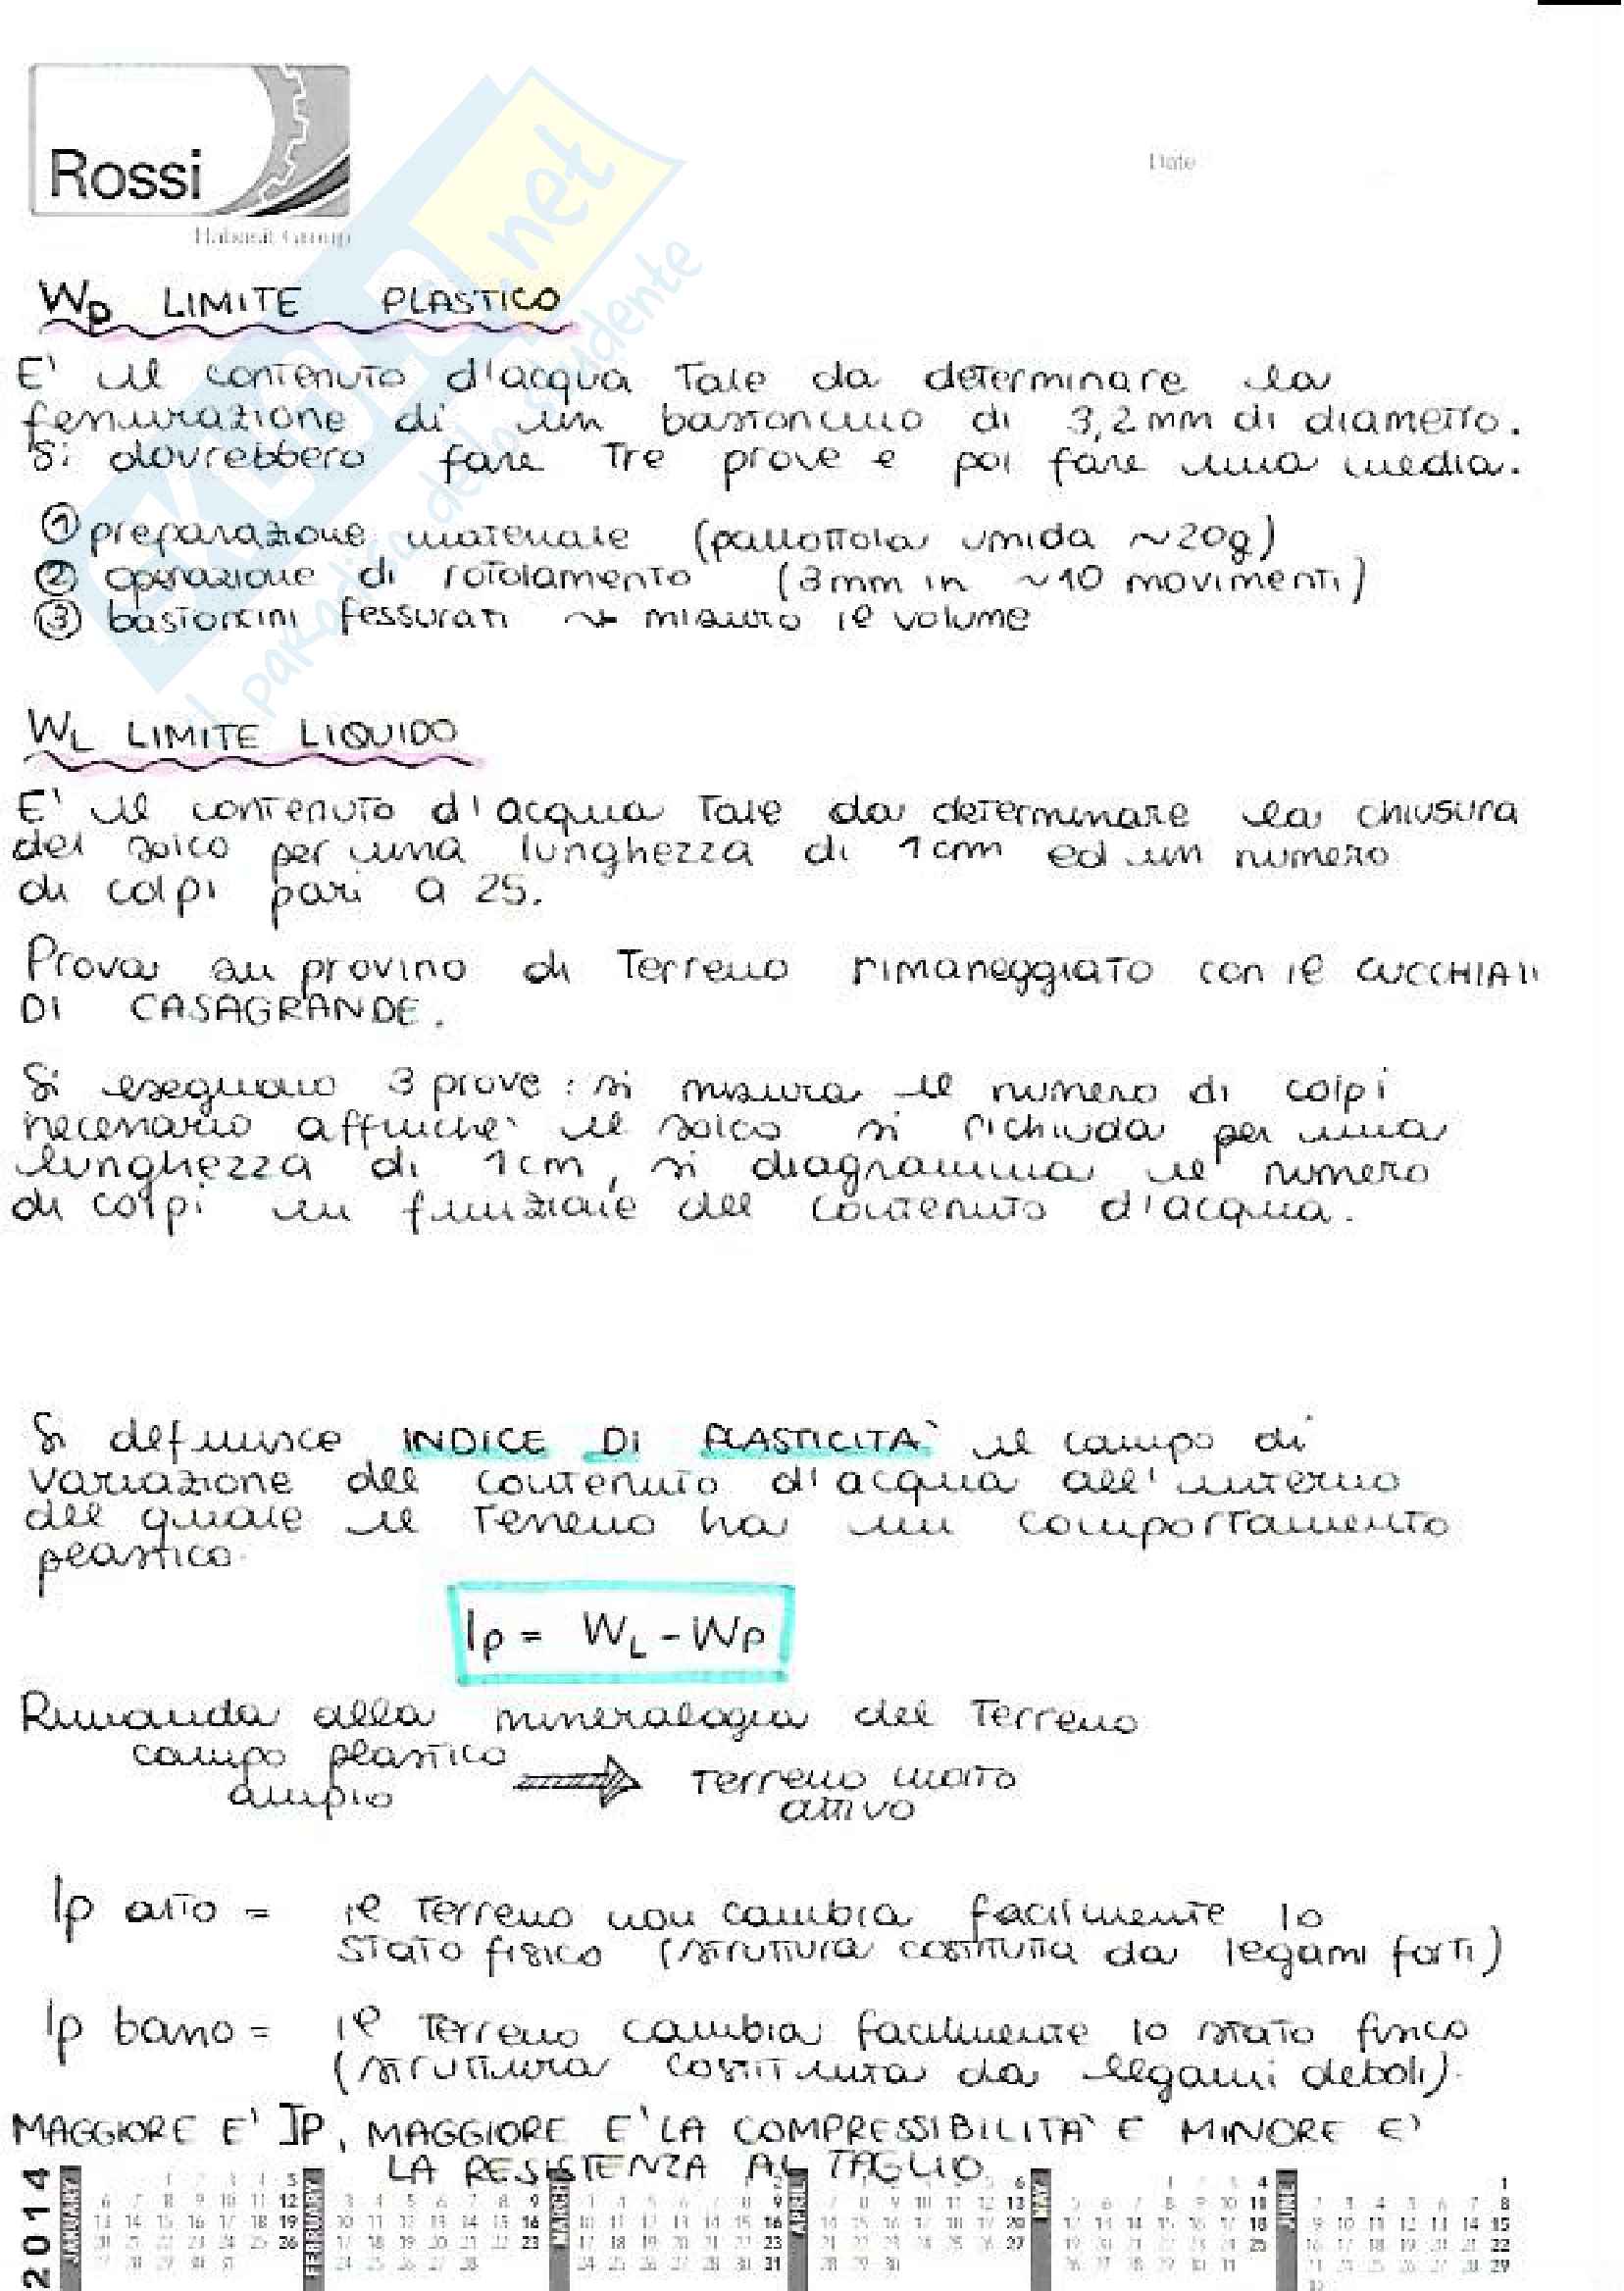 Rossi
Habasit Group
Date
SKUOLA.net
il paradiso dello studente
Wp LIMITE PLASTICO
E' il contenuto d'acqua tale da determinare la
fessurazione di un bastoncino di 3,2 mm di diametro.
Si dovrebbero fare tre prove e poi fare una media.
① preparazione materiale (pallottola umida ~20g)
② operazione di rotolamento (3mm in ~10 movimenti)
③ bastoncini fessurati → misuro il volume
WL LIMITE LIQUIDO
E' il contenuto d'acqua tale da determinare la chiusura
del solco per una lunghezza di 1cm ed un numero
di colpi pari a 25.
Prova su provino di terreno rimaneggiato con il CUCCHIAIO
DI CASAGRANDE.
Si eseguono 3 prove: si misura il numero di colpi
necessario affinche' il solco si richiuda per una
lunghezza di 1cm, si diagramma il numero
di colpi in funzione del contenuto d'acqua.
Si definisce INDICE DI PLASTICITA' il campo di
variazione del contenuto d'acqua all'interno
del quale il terreno ha un comportamento
plastico.
Ip = WL - WP
Rimanda alla mineralogia del terreno
campo plastico
ampio ⇒ terreno molto
attivo
Ip alto = il terreno non cambia facilmente lo
stato fisico (struttura costituita da legami forti)
Ip basso = il terreno cambia facilmente lo stato fisico
(struttura costituita da legami deboli).
MAGGIORE E' IP, MAGGIORE E' LA COMPRESSIBILITA' E MINORE E'
LA RESISTENZA AL TAGLIO
2014 JANUARY FEBRUARY MARCH APRIL MAY JUNE